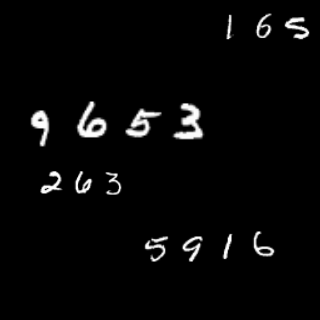 165
9653
263
5916